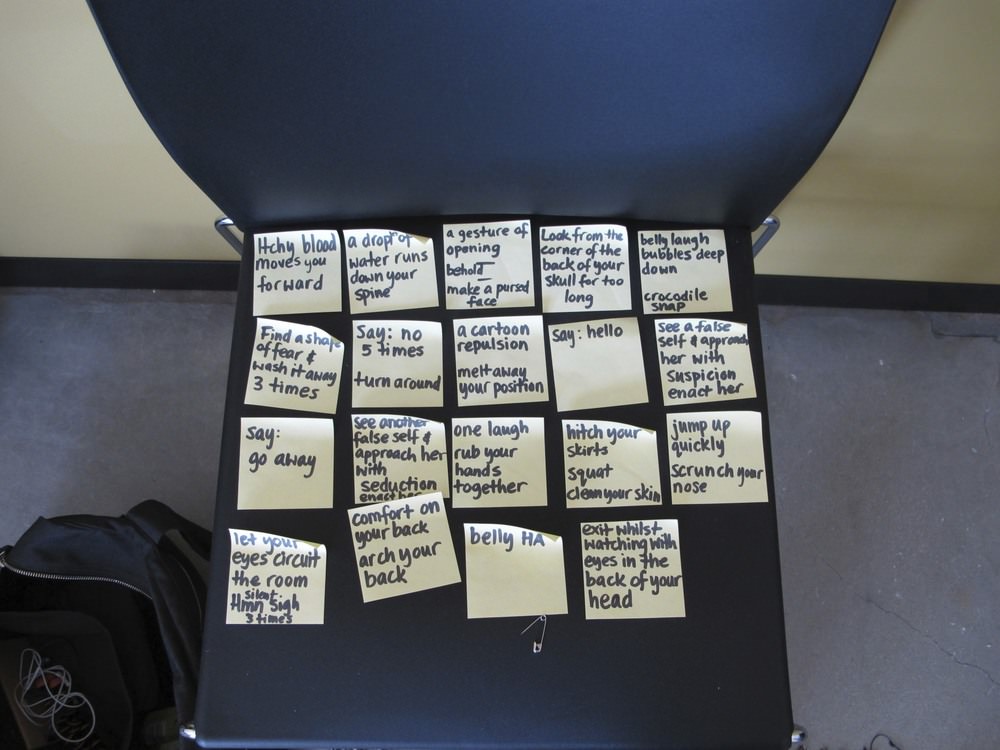 Itchy blood
moves you
forward
a drop of
water runs
down your
spine
a gesture of
opening
behold
make a pursed
face
Look from the
corner of the
back of your
skull for too
long
belly laugh
bubbles deep
down
crocodile
snap
Find a shape
of fear &
wash it away
3 times
Say: no
5 times
turn around
a cartoon
repulsion
melt away
your position
say: hello
see a false
self & approach
her with
suspicion
enact her
Say:
go away
see another
false self &
approach her
with
seduction
enact her
one laugh
rub your
hands
together
hitch your
skirts
squat
clean your skin
jump up
quickly
scrunch your
nose
let your
eyes circuit
the room
silent
Hmn Sigh
3 times
comfort on
your back
arch your
back
belly HA
exit whilst
watching with
eyes in the
back of your
head